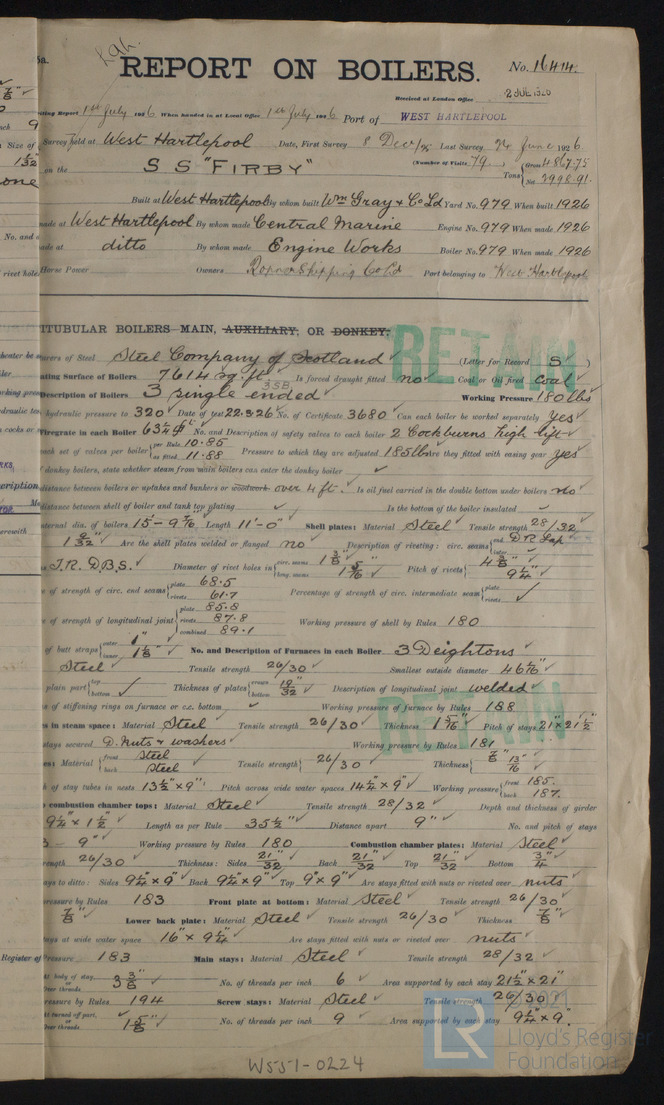 REPORT ON BOILERS.
No. 16414.
Received at London Office 2 JUL 1926
ting Report 1st July 1926 When handed in at Local Office 1st July 1926 Port of WEST HARTLEPOOL
Survey held at West Hartlepool Date, First Survey 8 Dec/25 Last Survey 24 June 1926.
on the S S "FIRBY" (Number of Visits 79) Tons Gross 4867.75 Net 2998.91.
Built at West Hartlepool By whom built Wm Gray & Co Ld Yard No. 979 When built 1926
made at West Hartlepool By whom made Central Marine Engine No. 979 When made 1926
made at ditto By whom made Engine Works Boiler No. 979 When made 1926
Horse Power Owners Ropner Shipping Co Ld Port belonging to West Hartlepool
ITUBULAR BOILERS MAIN, AUXILIARY, OR DONKEY.
RETAIN
urers of Steel Steel Company of Scotland (Letter for Record S)
ating Surface of Boilers 7614 sq. ft. Is forced draught fitted no Coal or Oil fired coal
Description of Boilers 3 single ended 3SB Working Pressure 180 lbs
hydraulic pressure to 320 Date of test 22.3.26 No. of Certificate 3680 Can each boiler be worked separately yes
Firegrate in each Boiler 63¼ No. and Description of safety valves to each boiler 2 Cockburns high lift
each set of valves per boiler per Rule 10.85 as fitted 11.88 Pressure to which they are adjusted 185 lbs Are they fitted with easing gear yes
f donkey boilers, state whether steam from main boilers can enter the donkey boiler
distance between boilers or uptakes and bunkers or woodwork over 4 ft. Is oil fuel carried in the double bottom under boilers no
distance between shell of boiler and tank top plating Is the bottom of the boiler insulated
nternal dia. of boilers 15-9 7/16 Length 11'-0" Shell plates: Material Steel Tensile strength 28/32
Are the shell plates welded or flanged no Description of riveting: circ. seams end D R Lap
s T.R. D.B.S. Diameter of rivet holes in circ. seams 1 3/8" long. seams 1 5/16" Pitch of rivets 9¼"
e of strength of circ. end seams plate 68.5 rivets 61.7 Percentage of strength of circ. intermediate seam plate rivets
e of strength of longitudinal joint plate 85.8 rivets 87.8 combined 89.1 Working pressure of shell by Rules 180
of butt straps outer 1" inner 1 1/8" No. and Description of Furnaces in each Boiler 3 Deightons
Steel Tensile strength 26/30 Smallest outside diameter
plain part top bottom Thickness of plates crown bottom 19/32" Description of longitudinal joint welded
s of stiffening rings on furnace or c.c. bottom Working pressure of furnace by Rules 188
RETAIN
es in steam space: Material Steel Tensile strength 26/30 Thickness 1 5/16" Pitch of stays 21 x 21½"
stays secured D. nuts & washers Working pressure by Rules 181
es: Material front Steel back Steel Tensile strength 26/30 Thickness 7/8" 13/16"
h of stay tubes in nests 13½" x 9" Pitch across wide water spaces 14¼" x 9" Working pressure front 185. back 187.
combustion chamber tops: Material Steel Tensile strength 28/32 Depth and thickness of girder
9¼" x 1½" Length as per Rule 35½" Distance apart 9" No. and pitch of stays
3 - 9" Working pressure by Rules 180 Combustion chamber plates: Material Steel
rength 26/30 Thickness: Sides 21/32" Back 21/32" Top 21/32" Bottom 3/4"
ays to ditto: Sides 9¼" x 9" Back 9¼" x 9" Top 9" x 9" Are stays fitted with nuts or riveted over nuts
ressure by Rules 183 Front plate at bottom: Material Steel Tensile strength 26/30
7/8" Lower back plate: Material Steel Tensile strength 26/30 Thickness 7/8"
ays at wide water space 16" x 9¼" Are stays fitted with nuts or riveted over nuts
Pressure 183 Main stays: Material Steel Tensile strength 28/32
At body of stay, or Over threads 3 3/8" No. of threads per inch 6 Area supported by each stay 21½" x 21"
ressure by Rules 194 Screw stays: Material Steel Tensile strength 26/30
At turned off part, or Over threads 1 5/8" No. of threads per inch 9 Area supported by each stay 9¼" x 9".
W551-0224
© 2021
LR
Lloyd's Register
Foundation